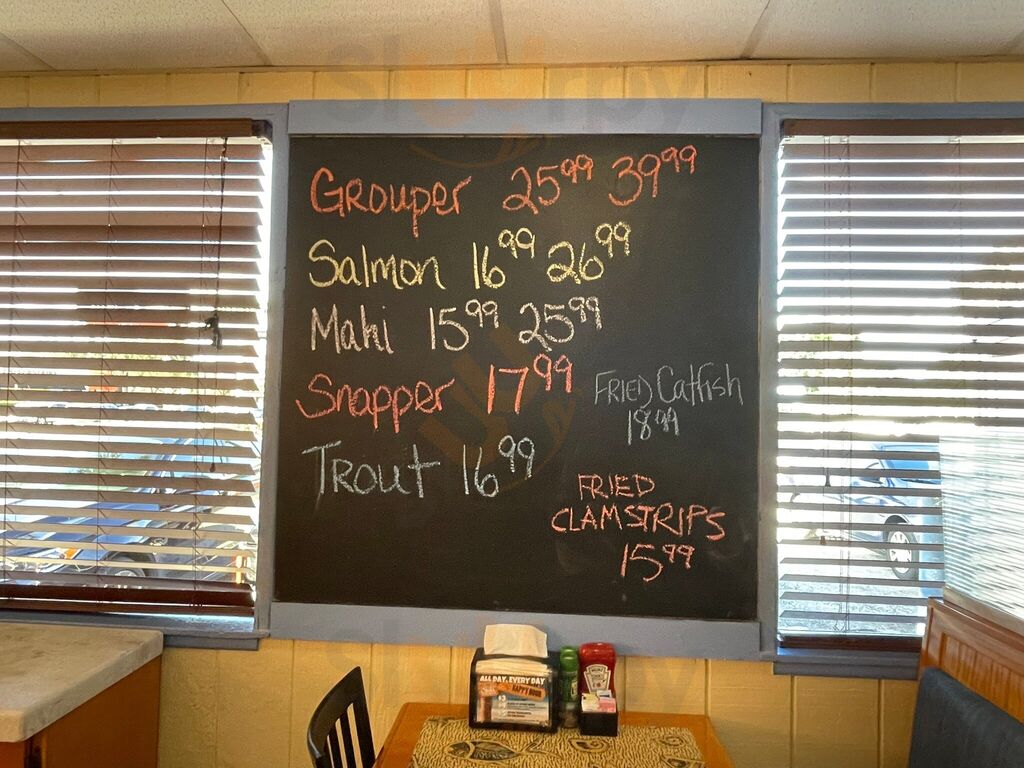 Slurpy
GROUPER 25.99 39.99
Salmon 16.99 26.99
Mahi 15.99 25.99
Snapper 17.99
FRIED Catfish
18.99
TROUT 16.99
FRIED
CLAM STRIPS
15.99
ALL DAY, EVERY DAY
HAPPY HOUR
$3
HEINZ